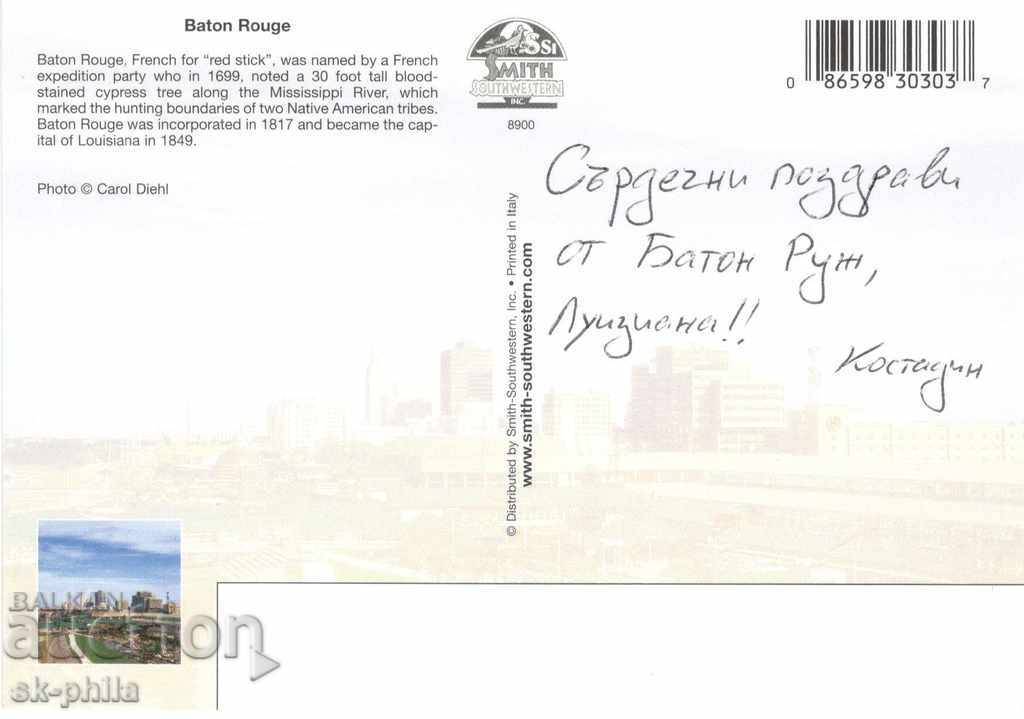 Baton Rouge
Baton Rouge, French for “red stick”, was named by a French
expedition party who in 1699, noted a 30 foot tall blood-
stained cypress tree along the Mississippi River, which
marked the hunting boundaries of two Native American tribes.
Baton Rouge was incorporated in 1817 and became the cap-
ital of Louisiana in 1849.
Photo © Carol Diehl
SSI
SMITH
SOUTHWESTERN
INC.
8900
0 86598 30303 7
© Distributed by Smith-Southwestern, Inc. • Printed in Italy
www.smith-southwestern.com
Сърдечни поздрави
от Батон Руж,
Луизиана!!
Костадин
BALKAN
auction
sk-phila